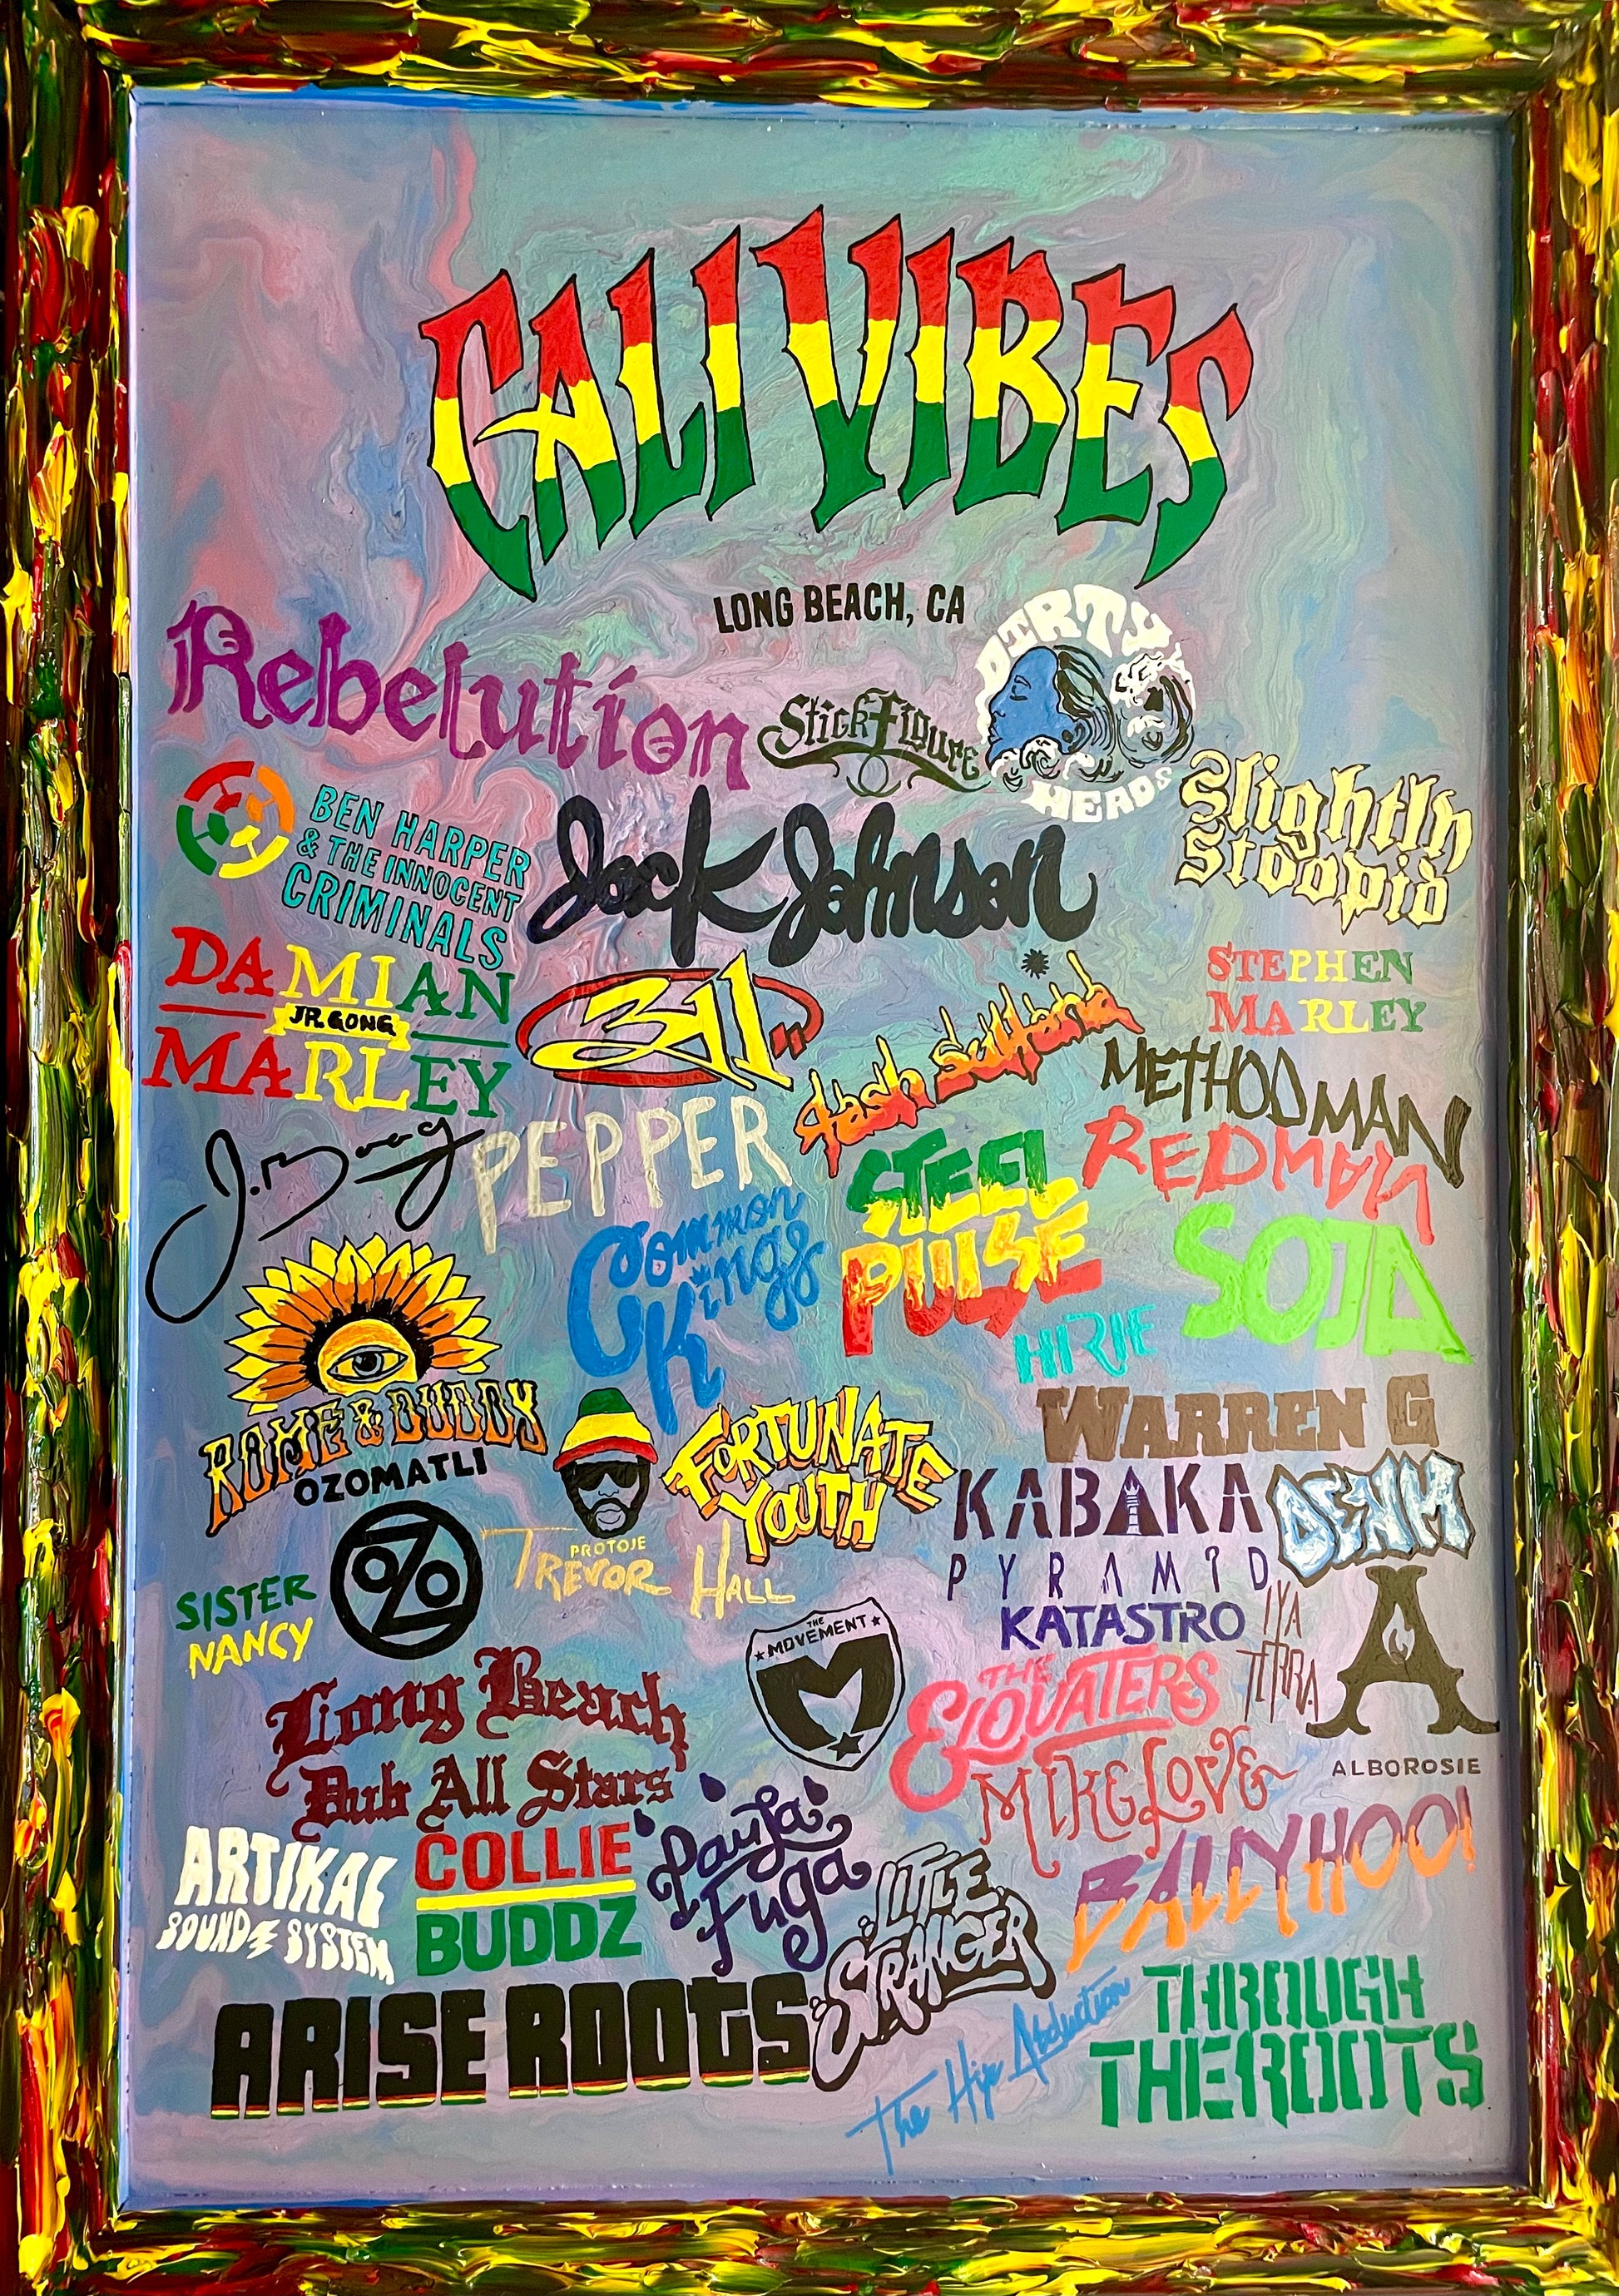 CALI VIBES
LONG BEACH, CA
Rebelution
Stick Figure
DIRTY
HEADS
BEN HARPER
& THE INNOCENT
CRIMINALS
Jack Johnson
Slightly
Stoopid
DAMIAN
JR. GONG
MARLEY
311
Tash Sultana
STEPHEN
MARLEY
METHOD MAN
REDMAN
J. Boog
PEPPER
STEEL
PULSE
Common
Kings
SOJA
HIRIE
ROME & DUDDY
OZOMATLI
OZO
PROTOJE
FORTUNATE
YOUTH
WARREN G
KABAKA
PYRAMID
DENM
TREVOR HALL
SISTER
NANCY
THE
MOVEMENT
M
KATASTRO
IYA
TERRA
A
ALBOROSIE
Long Beach
Dub All Stars
THE
ELOVATERS
MIKE LOVE
ARTIKAL
SOUND SYSTEM
COLLIE
BUDDZ
Paula
Fuga
LITTLE
STRANGER
BALLYHOO!
ARISE ROOTS
The Hip Abduction
THROUGH
THE ROOTS